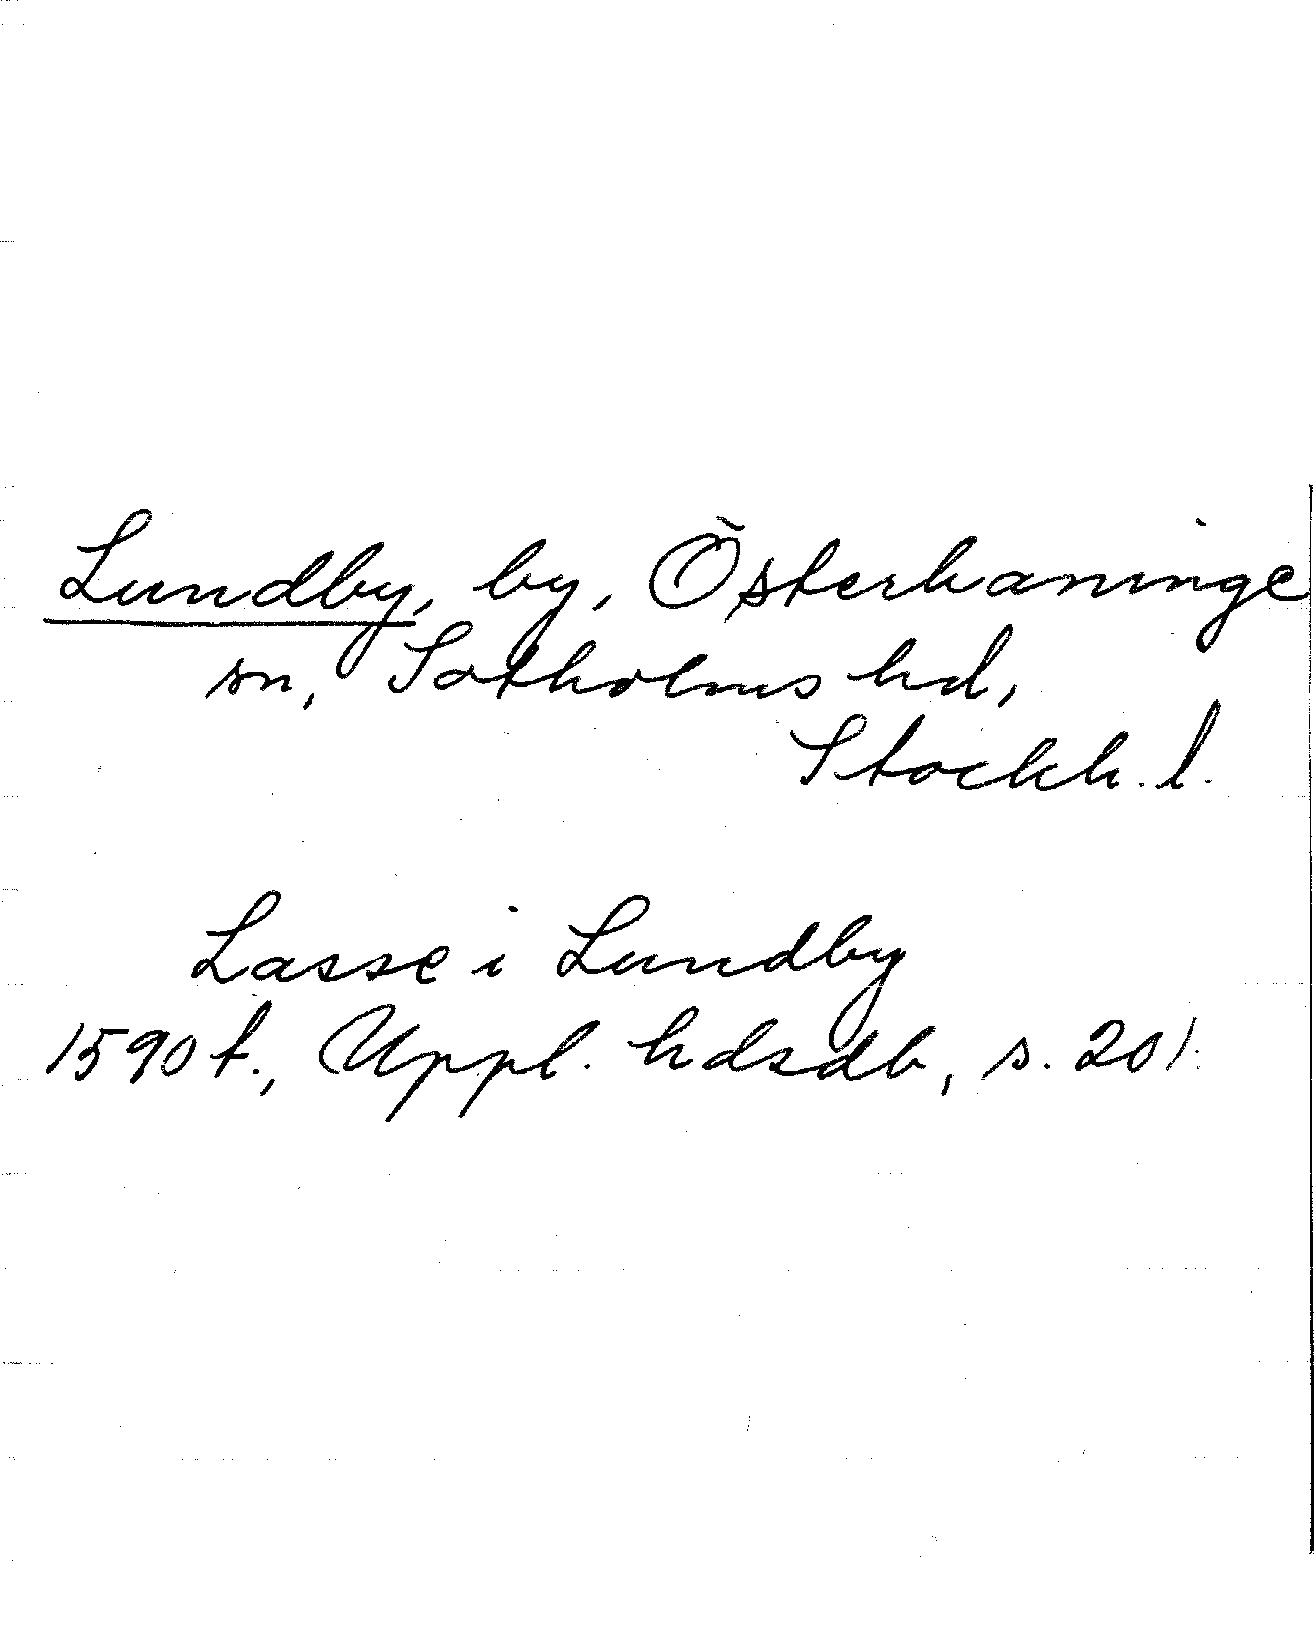 Lundby, by, Österhaninge
sn, Sotholms hd,
Stockh. l.
Lasse i Lundby
1590 t., Uppl. hdsdb, s. 201.